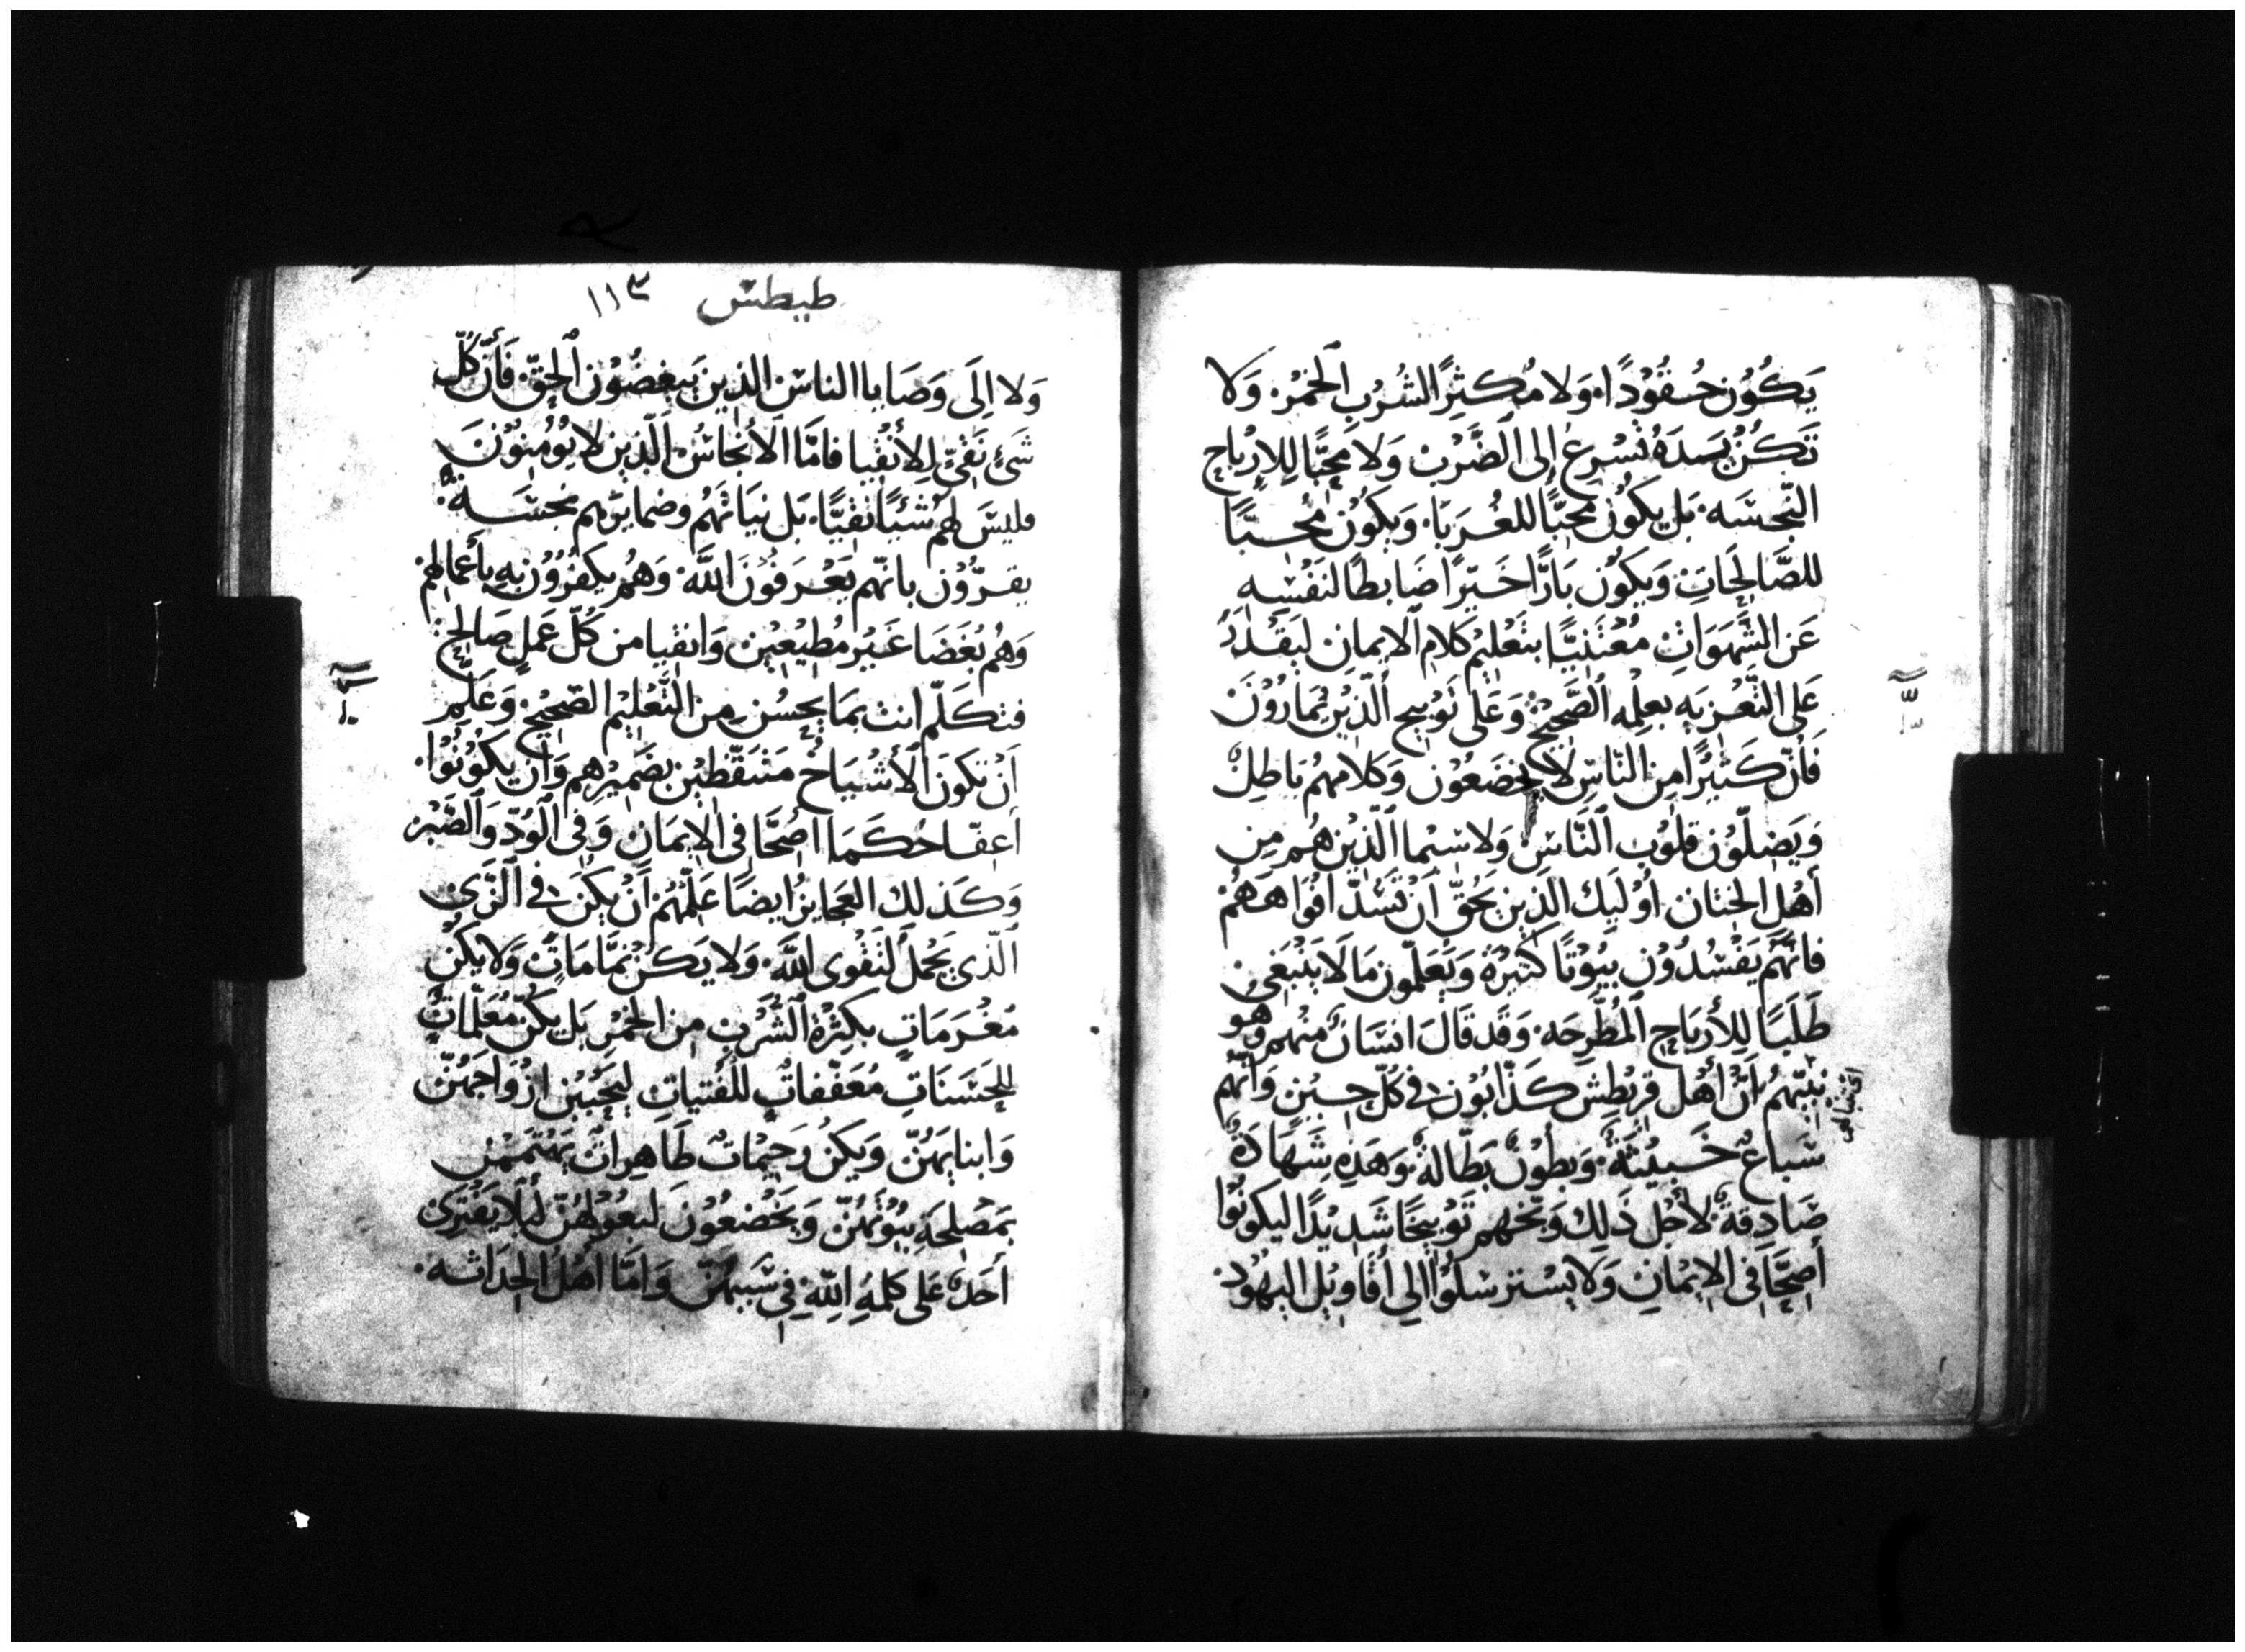 يَكُوُن حُقُوْدًا. وَلا مُكثِرًا لشُربِ الخمْر. وَلا
تَكُنْ يَدَهُ تُسْرِعُ إِلى الضَّرْب وَلا مُحِبًّا لِلأرْبَاحِ
النّجِسَه. بَل يكُون مُحبًّا للغُرَبَا. وَيَكوُن مُحبًّا
للصَّالِحَاتِ وَيَكوُن بَارًّا خَيّرًا ضَابطًا لنَفْسِه
عَن الشَّهَوَاتِ مُعْتَنِيًّا بتَعْليْم كلامِ الايمانِ ليَقْدرُ
عَلى التَّعْزيَه بعِلمِه الصَّحيْحْ وَعَلى تَوْبيج الّذيْن يُمارُوْنَ
فَأنّ كَثيْرًا مِن النّاسِ لا يخضَعُوْن وَكَلامهُم بَاطِلٌ
وَيَضِلّوُن قلوُب النَّاسِ وَلا سيْما الّذيْن هُم مِن
أهْل الختان أوُليَك الّذين يَحُقّ أن تَسُدّ افْوَاهَهُمْ
فانّهُم يَفْسُدُوْن بيُوْتًا كثيرَة وَيُعَلّمون مَا لَا يَنْبَغِي
طَلَبًا لِلأرْبَاح المُطَّرِحَه. وَقَد قَالَ انسَانٌ منهم وَهو
نبيّهمُ أنَّ أهْل قريْطِش كَذّابُوْن في كُلّ حِيْن وَأنّهم
سبَاعٌ خَبيْثَةٌ. وَبطوُنٌ بَطّالةٌ. وَهَذِهِ شَهَادَةٌ
صَادِقةٌ. لأجْل ذَلِك وَبّخهم تَوْبيخًا شَديْدًا ليَكونُوا
أصِحَّآ فِي الايْمانِ وَلا يسْترسلُوْا الي أقاويْل اليهُوْد.
طيطس ١١٣
وَلا اِلَى وَصَايا الناسِ الذين يَبغضُوْن الحقّ. فَأنّ كُلّ
شَيٍّ نَقيٌّ لِلأنْقيا فامَّا الانْجاسُ الّذين لا يُؤُمِنوُنَ
فليسَ لهمُ شئيًا نقيًّا. بَل نيَاتهُم وضمايرهم نجسَةٌ.
يقرّوْن بانّهم يَعْرَفوُنَ اللّه. وَهُم يكفُرُوُن بهِ بأَعمالهمْ
وَهُم بُغَضَا غَيْر مُطيْعِيْن وَانقيا من كُلّ عَمَلٍ صَالحٍ
فتكَلّم انت بمَا يحْسُن مِن التَّعْليْم الصّحيْح وَعَلِّم
أنْ تكونَ الأشْيَاخُ مَتيَقّظيْن بضَميْرهِم وَان يَكوُنوُا.
أعفّا حُكَمَا اصُحَّا فِى الايمَانِ وَفِى الوُدّ وَالصَّبْر
وَكَذلك العَجايزُ ايضًا عَلّمْهُم أنْ يَكُنَ في الزّي
الّذي يَحْمل لتَقْوى اللّهِ. وَلا يَكُنْ نمَّامَاتٍ وَلا يَكُنْ
مُغرَمَاتٍ بكثِرْة الشُرْب مِن الخمْر بَل يَكُنّ مُعَلّماتٌ
للحَسَنَاتِ مُعَفِّفاتٌ للفَتياتِ ليحْبَبْن ازْوَاجَهُنّ
وَابنايَهُنّ وَيَكنْ رَحيْمَاتٌ طَاهِرَاتٌ يَهْتَمَمْن
بمَصْلِحةِ بيُوْتهُنّ وَيَخْضعُوْن لبعُوْلهُنّ ليَلا يَفْتَرى
أحَدٌ عَلى كَلمَةِ اللّه فِي سَببهُنّ وَامَّا أهْل الحدَاثه.